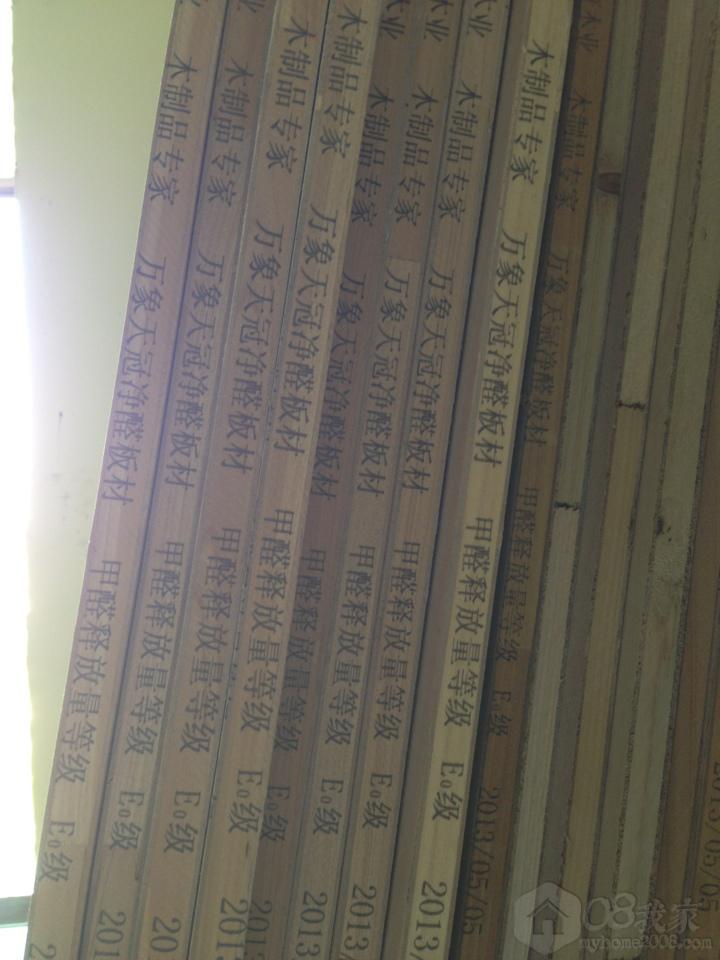 木制品专家 万象天冠净醛板材 甲醛释放量等级 E₀级 2
木制品专家 万象天冠净醛板材 甲醛释放量等级 E₀级 201
木制品专家 万象天冠净醛板材 甲醛释放量等级 E₀级 20
木制品专家 万象天冠净醛板材 甲醛释放量等级 E₀级 201
木制品专家 万象天冠净醛板材 甲醛释放量等级 E₀级 201
木业 木制品专家 万象天冠净醛板材 甲醛释放量等级 E₀级 2013
木业 木制品专家 万象天冠净醛板材 甲醛释放量等级 E₀级 2013/
木业 木制品专家 万象天冠净醛板材 甲醛释放量等级 E₀级 2013/
木业 木制品专家 万象天冠净醛板材 甲醛释放量等级 E₀级 2013/05/05
2013/05/05
08我家
myhome2008.com